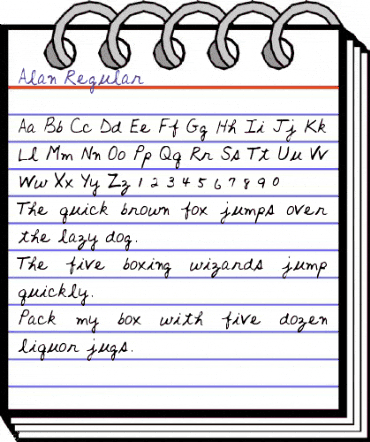 Alan Regular
Aa Bb Cc Dd Ee Ff Gg Hh Ii Jj Kk
Ll Mm Nn Oo Pp Qq Rr Ss Tt Uu Vv
Ww Xx Yy Zz 1 2 3 4 5 6 7 8 9 0
The quick brown fox jumps over
the lazy dog.
The five boxing wizards jump
quickly.
Pack my box with five dozen
liquor jugs.